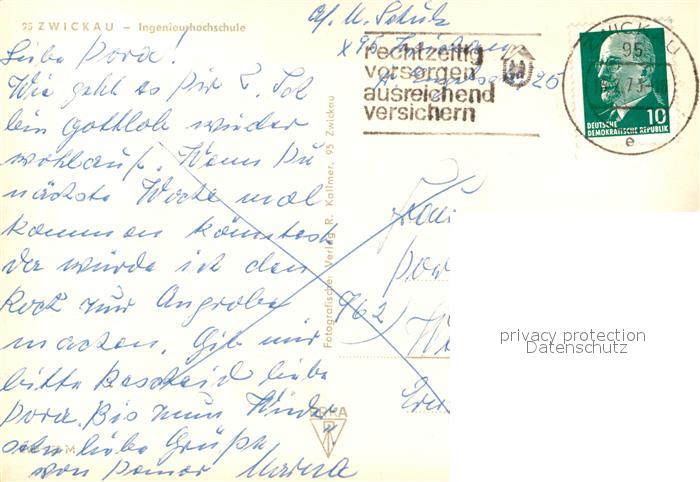 95 ZWICKAU — Ingenieurhochschule
Liebe Dora!
Wie geht es Dir? Ich
bin gottlob wieder
wohlauf. Wenn Du
nächste Woche mal
kommen könntest
da würde ich den
Rock zur Angrobe
machen. Gib mir
bitte Bescheid liebe
Dora. Bis zum Wieder-
sehn liebe Grüße
von Deiner
Fotografischer Verlag R. Kallmer, 95 Zwickau
rechtzeitig
vorsorgen
ausreichend
versichern
ZWICKAU
95
e
10
DEUTSCHE
DEMOKRATISCHE REPUBLIK
Frau
962)
privacy protection
Datenschutz